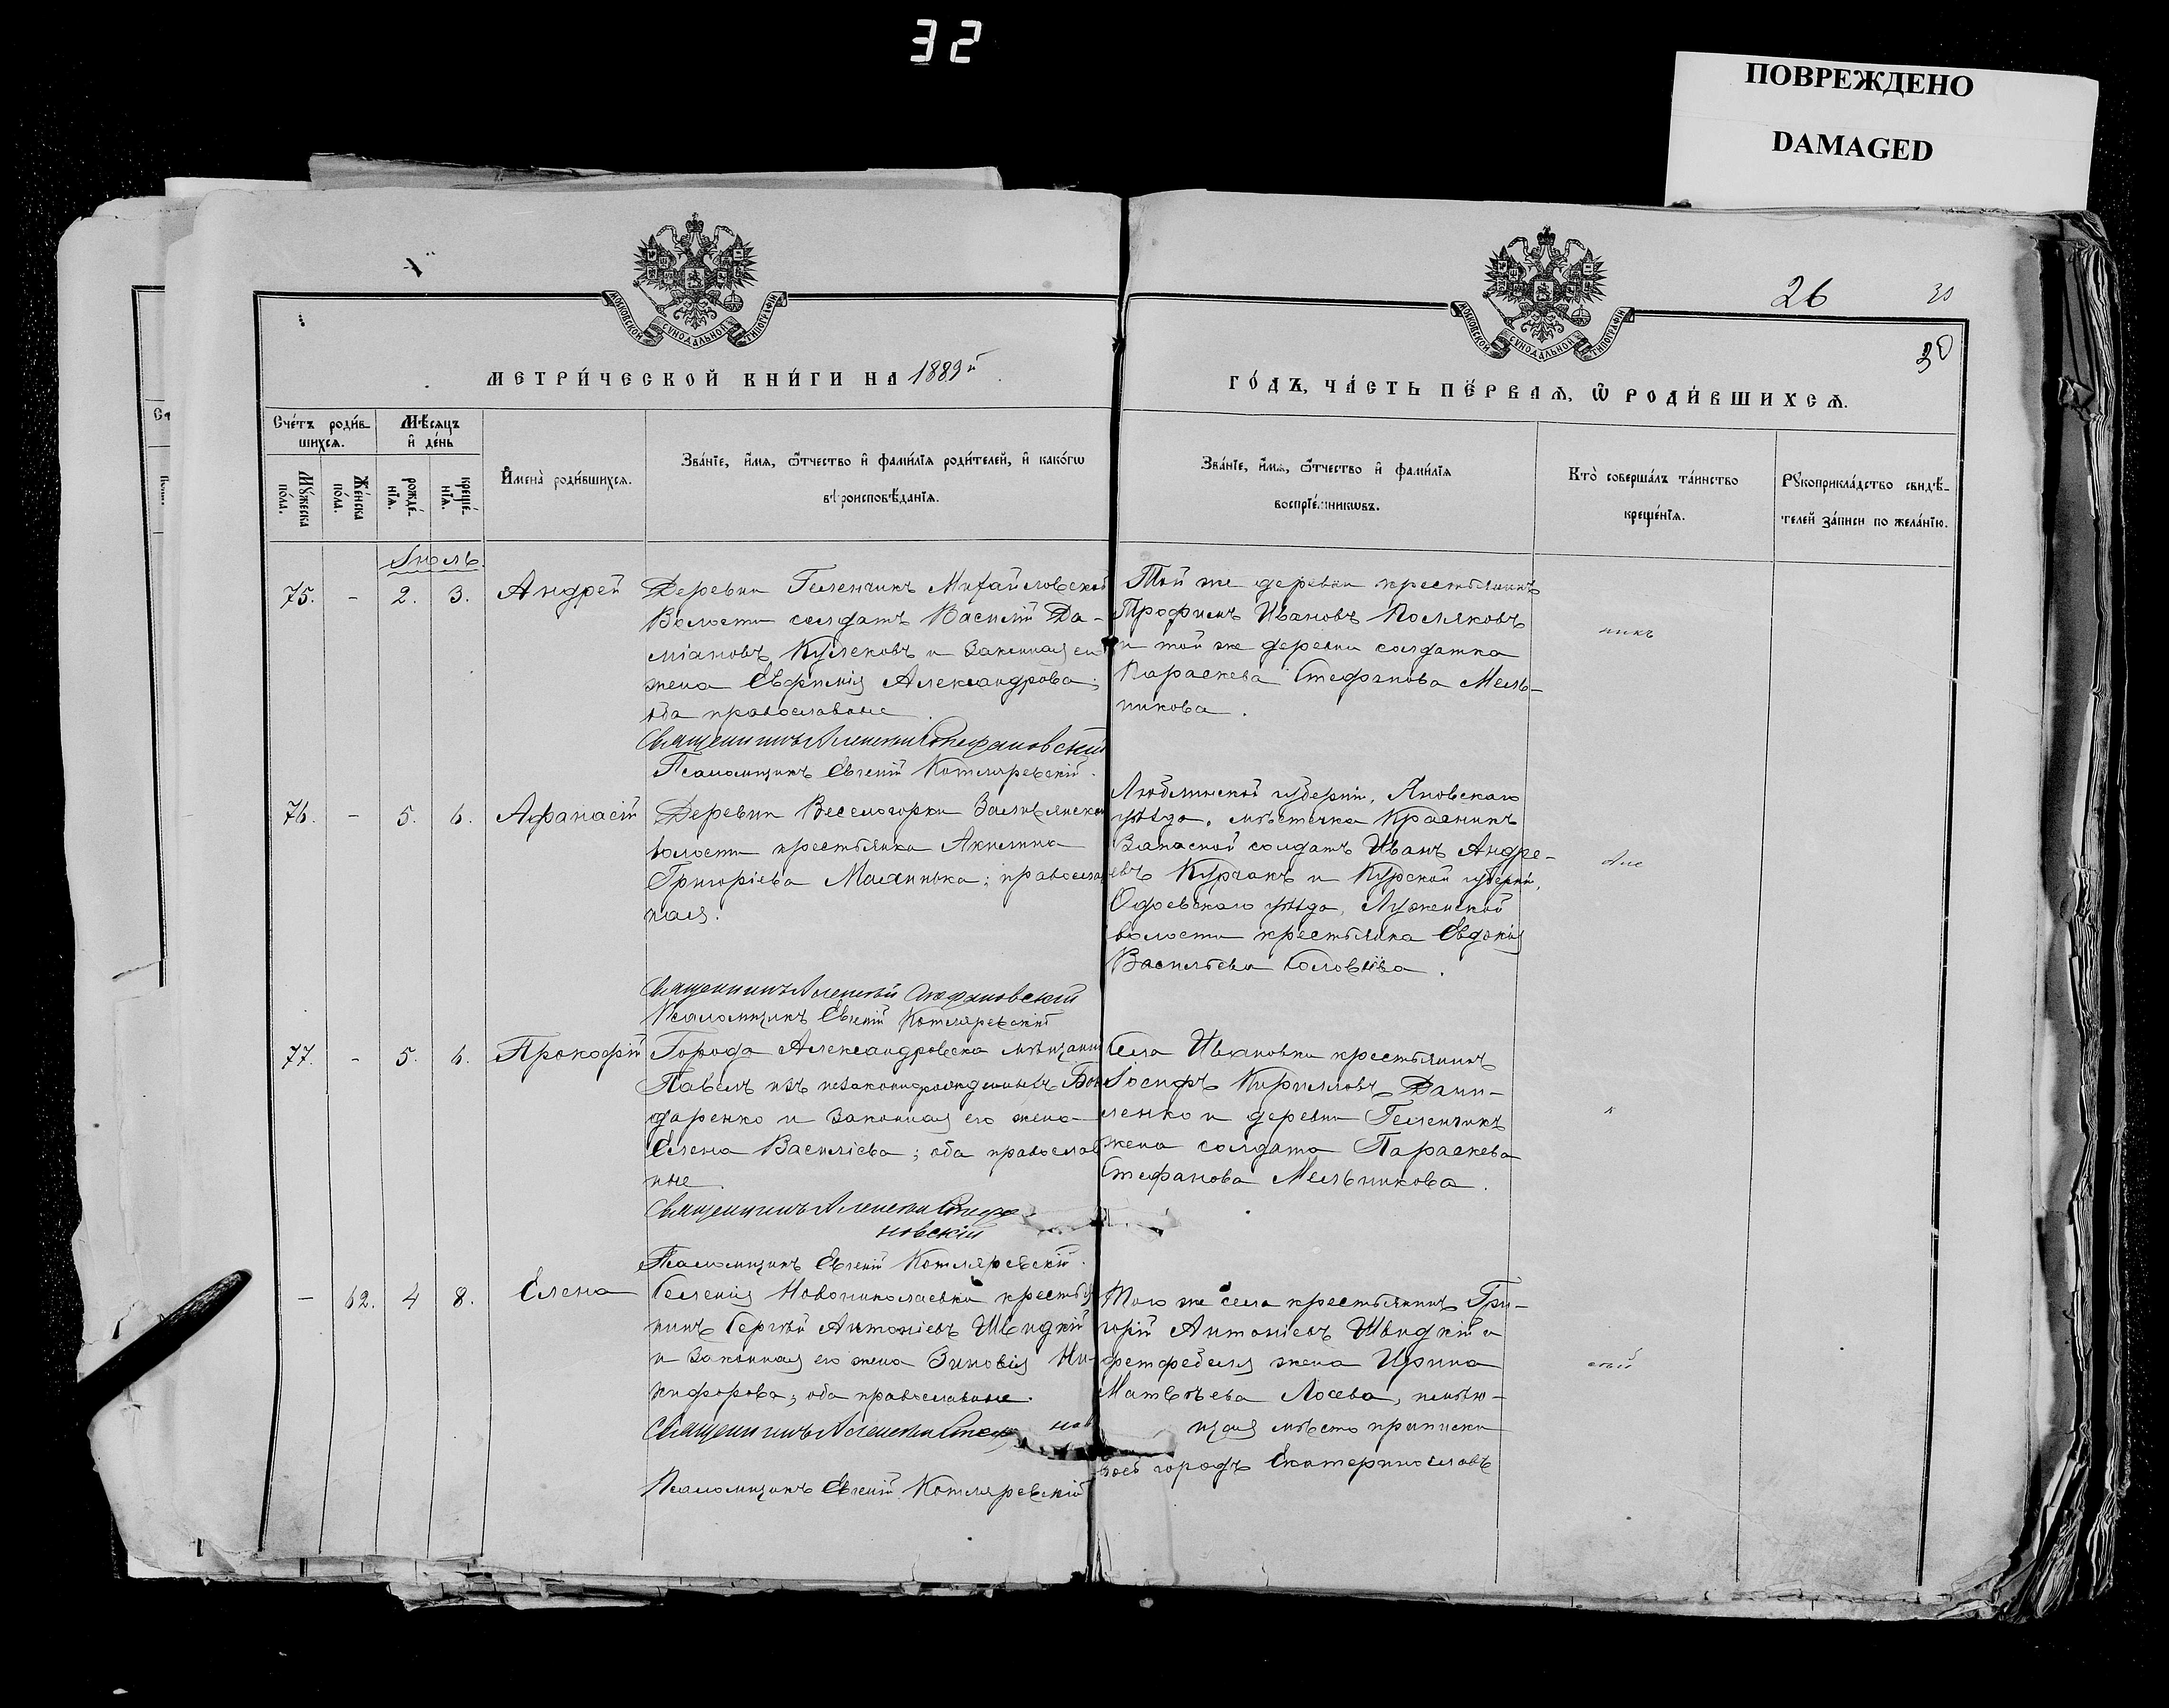 32
ПОВРЕЖДЕНО
DAMAGED
МОСКОВСКОЙ СѴНОДАЛЬНОЙ ТИПОГРАФІИ
МОСКОВСКОЙ СѴНОДАЛЬНОЙ ТИПОГРАФІИ
26
30
30
МЕТРИ́ЧЕСКОЙ КНИ́ГИ НА 1889й
ГО́ДЪ, ЧА́СТЬ ПЕ́РВАѦ, Ѿ РОДИ́ВШИХСѦ.
Сче́тъ роди́в-
шихсѧ.
Мꙋ́жеска по́ла.
Же́нска по́ла.
Мѣ́сѧцъ
и де́нь
рожде́-
нїѧ.
креще́-
нїѧ.
И҆мена̀ роди́вшихсѧ.
Зва́нїе, и҆́мѧ, ѻ҆́тчество и҆ фами́лїѧ роди́телей, и҆ како́гѡ
вѣроисповѣ́данїѧ.
Зва́нїе, и҆́мѧ, ѻ҆́тчество и҆ фами́лїѧ
воспрїе́мникѡвъ.
Кто̀ соверша́лъ та́инство
креще́нїѧ.
Рꙋкоприкла́дство свидѣ́-
телей за́писи по жела́нїю.
Іюль.
75. - 2. 3. Андрей
Деревни Геленчикъ Михайловской
Волости солдатъ Василій Да-
міановъ Кулековъ и законная его
жена Евфимія Александрова;
оба православные.
Священникъ Алексій Стефановскій
Псаломщикъ Евгеній Котляревскій.
Той же деревни крестьянинъ
Трофимъ Ивановъ Поляковъ
и той же деревни солдатка
Параскева Стефанова Мель-
никова.
никъ
76. - 5. 6. Афанасій
Деревни Веселогорки
волости крестьянка Акилина
Григоріева ; православ
ная.
Священникъ Алексій Стефановскій
Псаломщикъ Евгеній Котляревскій
Люблинской губерніи, Яновскаго
уѣзда, мѣстечка Красникъ
Запасной солдатъ Иванъ Андре-
евъ Курчакъ и Курской губерніи,
уѣзда,
волости крестьянка Евдокія
Васильева
77. - 5. 6. Прокофій
Города Александровска мѣщанинъ
Павелъ изъ незаконнорожденныхъ Бон
даренко и законная его жена
Елена Василіева; оба православ
ные.
Священникъ Алексій Стефа
новскій
Псаломщикъ Евгеній Котляревскій.
Села Ивановки крестьянинъ
Іосифъ Кирилловъ Дани-
ленко и деревни Геленчикъ
жена солдата Параскева
Стефанова Мельникова.
- 62. 4 8. Елена
Селенія Новониколаевки крестья
нинъ Сергѣй Антоніевъ Швидкій
и законная его жена Зиновія Ни-
кифорова; оба православные.
Священникъ Алексій Стеф нов
Псаломщикъ Евгеній Котляревскій
Того же села крестьянинъ Гри-
горій Антоніевъ Швидкій и
фельдфебеля жена Ирина
Матвѣева Лосева, имѣю-
щая мѣсто приписки
городъ Екатеринославъ